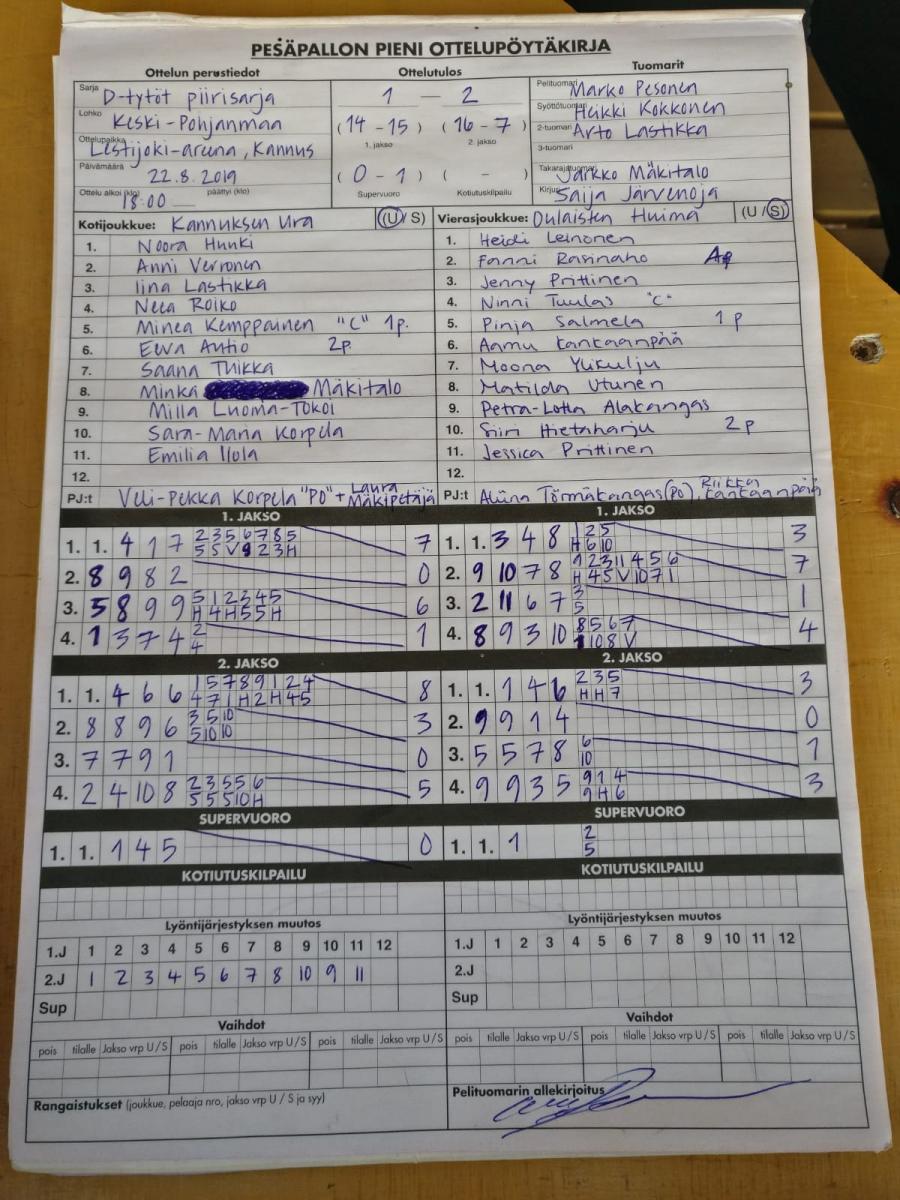 PESÄPALLON PIENI OTTELUPÖYTÄKIRJA
Ottelun perustiedot Ottelutulos Tuomarit
Sarja D-tytöt piirisarja 1 - 2 Pelituomari Marko Pesonen
Lohko Keski-Pohjanmaa (14 - 15) (16 - 7) Syöttötuomari Heikki Kokkonen
1. jakso 2. jakso 2-tuomari Arto Lastikka
Ottelupaikka Lestijoki-areena, Kannus 3-tuomari
Päivämäärä 22.8.2019 (0 - 1) ( - ) Takarajatuomari Jarkko Mäkitalo
Ottelu alkoi (klo) 18:00 päättyi (klo) Supervuoro Kotiutuskilpailu Kirjuri Saija Järvenoja
Kotijoukkue: Kannuksen Ura (U / S) Vierasjoukkue: Oulaisten Huima (U / S)
1. Noora Hunki 1. Heidi Leinonen
2. Anni Verronen 2. Fanni Rasinaho
3. Iina Lastikka 3. Jenny Prittinen
4. Neea Roiko 4. Ninni Tuulas "C"
5. Minea Kemppainen "C" 1p. 5. Pinja Salmela 1 p
6. Eeva Autio 2p. 6. Aamu Kankaanpää
7. Saana Tuikka 7. Moona Ylikulju
8. Minka Mäkitalo 8. Matilda Utunen
9. Milla Luoma-Tokoi 9. Petra-Lotta Alakangas
10. Sara-Maria Korpela 10. Siiri Hietaharju 2 p
11. Emilia Ilola 11. Jessica Prittinen
12. 12.
PJ:t Veli-Pekka Korpela "PO" + Laura Mäkipetäjä PJ:t Aliina Törmäkangas (PO), Riikka Kankaanpää
1. JAKSO 1. JAKSO
1. 1. 4 1 7 2 3 5 6 7 8 5 7 1. 1. 3 4 8 1 2 5 3
5 5 V 9 2 3 H H 6 10
2. 8 9 8 2 0 2. 9 10 7 8 1 2 3 11 4 5 6 7
H 4 5 V 10 7 1
3. 5 8 9 9 5 1 2 3 4 5 6 3. 2 11 6 7 3 1
H 4 H 5 5 H 5
4. 1 3 7 4 2 1 4. 8 9 3 10 8 5 6 7 4
4 1 10 8 V
2. JAKSO 2. JAKSO
1. 1. 4 6 6 1 5 7 8 9 1 2 4 8 1. 1. 1 4 6 2 3 5 3
4 7 1 H 2 H 4 5 H H 7
2. 8 8 9 6 3 5 10 3 2. 9 9 1 4 0
5 10 10
3. 7 7 9 1 0 3. 5 5 7 8 6 1
10
4. 2 4 10 8 2 3 5 5 6 5 4. 9 9 3 5 9 1 4 3
5 5 5 10 H 9 H 6
SUPERVUORO SUPERVUORO
1. 1. 1 4 5 0 1. 1. 1 2
5
KOTIUTUSKILPAILU KOTIUTUSKILPAILU
Lyöntijärjestyksen muutos Lyöntijärjestyksen muutos
1.J 1 2 3 4 5 6 7 8 9 10 11 12 1.J 1 2 3 4 5 6 7 8 9 10 11 12
2.J 1 2 3 4 5 6 7 8 10 9 11 2.J
Sup Sup
Vaihdot Vaihdot
pois tilalle Jakso vrp U / S pois tilalle Jakso vrp U / S pois tilalle Jakso vrp U / S pois tilalle Jakso vrp U / S pois tilalle Jakso vrp U / S pois tilalle Jakso vrp U / S
Rangaistukset (joukkue, pelaaja nro, jakso vrp U / S ja syy) Pelituomarin allekirjoitus